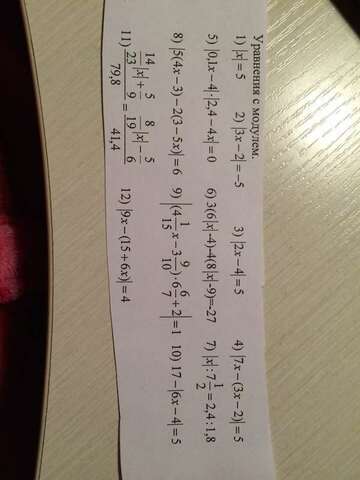 Уравнения с модулем.
1) |x| = 5 2) |3x − 2| = −5 3) |2x − 4| = 5 4) |7x − (3x − 2)| = 5
5) |0,1x − 4| · |2,4 − 4x| = 0 6) 3(6|x| -4)-4(8|x| -9)=-27 7) |x| : 7 1/2 = 2,4 : 1,8
8) |5(4x − 3) − 2(3 − 5x)| = 6 9) |(4 1/15 x − 3 9/10) · 6 6/7 + 2| = 1 10) 17 − |6x − 4| = 5
11) (14/23 |x| + 5/9)/79,8 = (8/19 |x| − 5/6)/41,4 12) |9x − (15 + 6x)| = 4